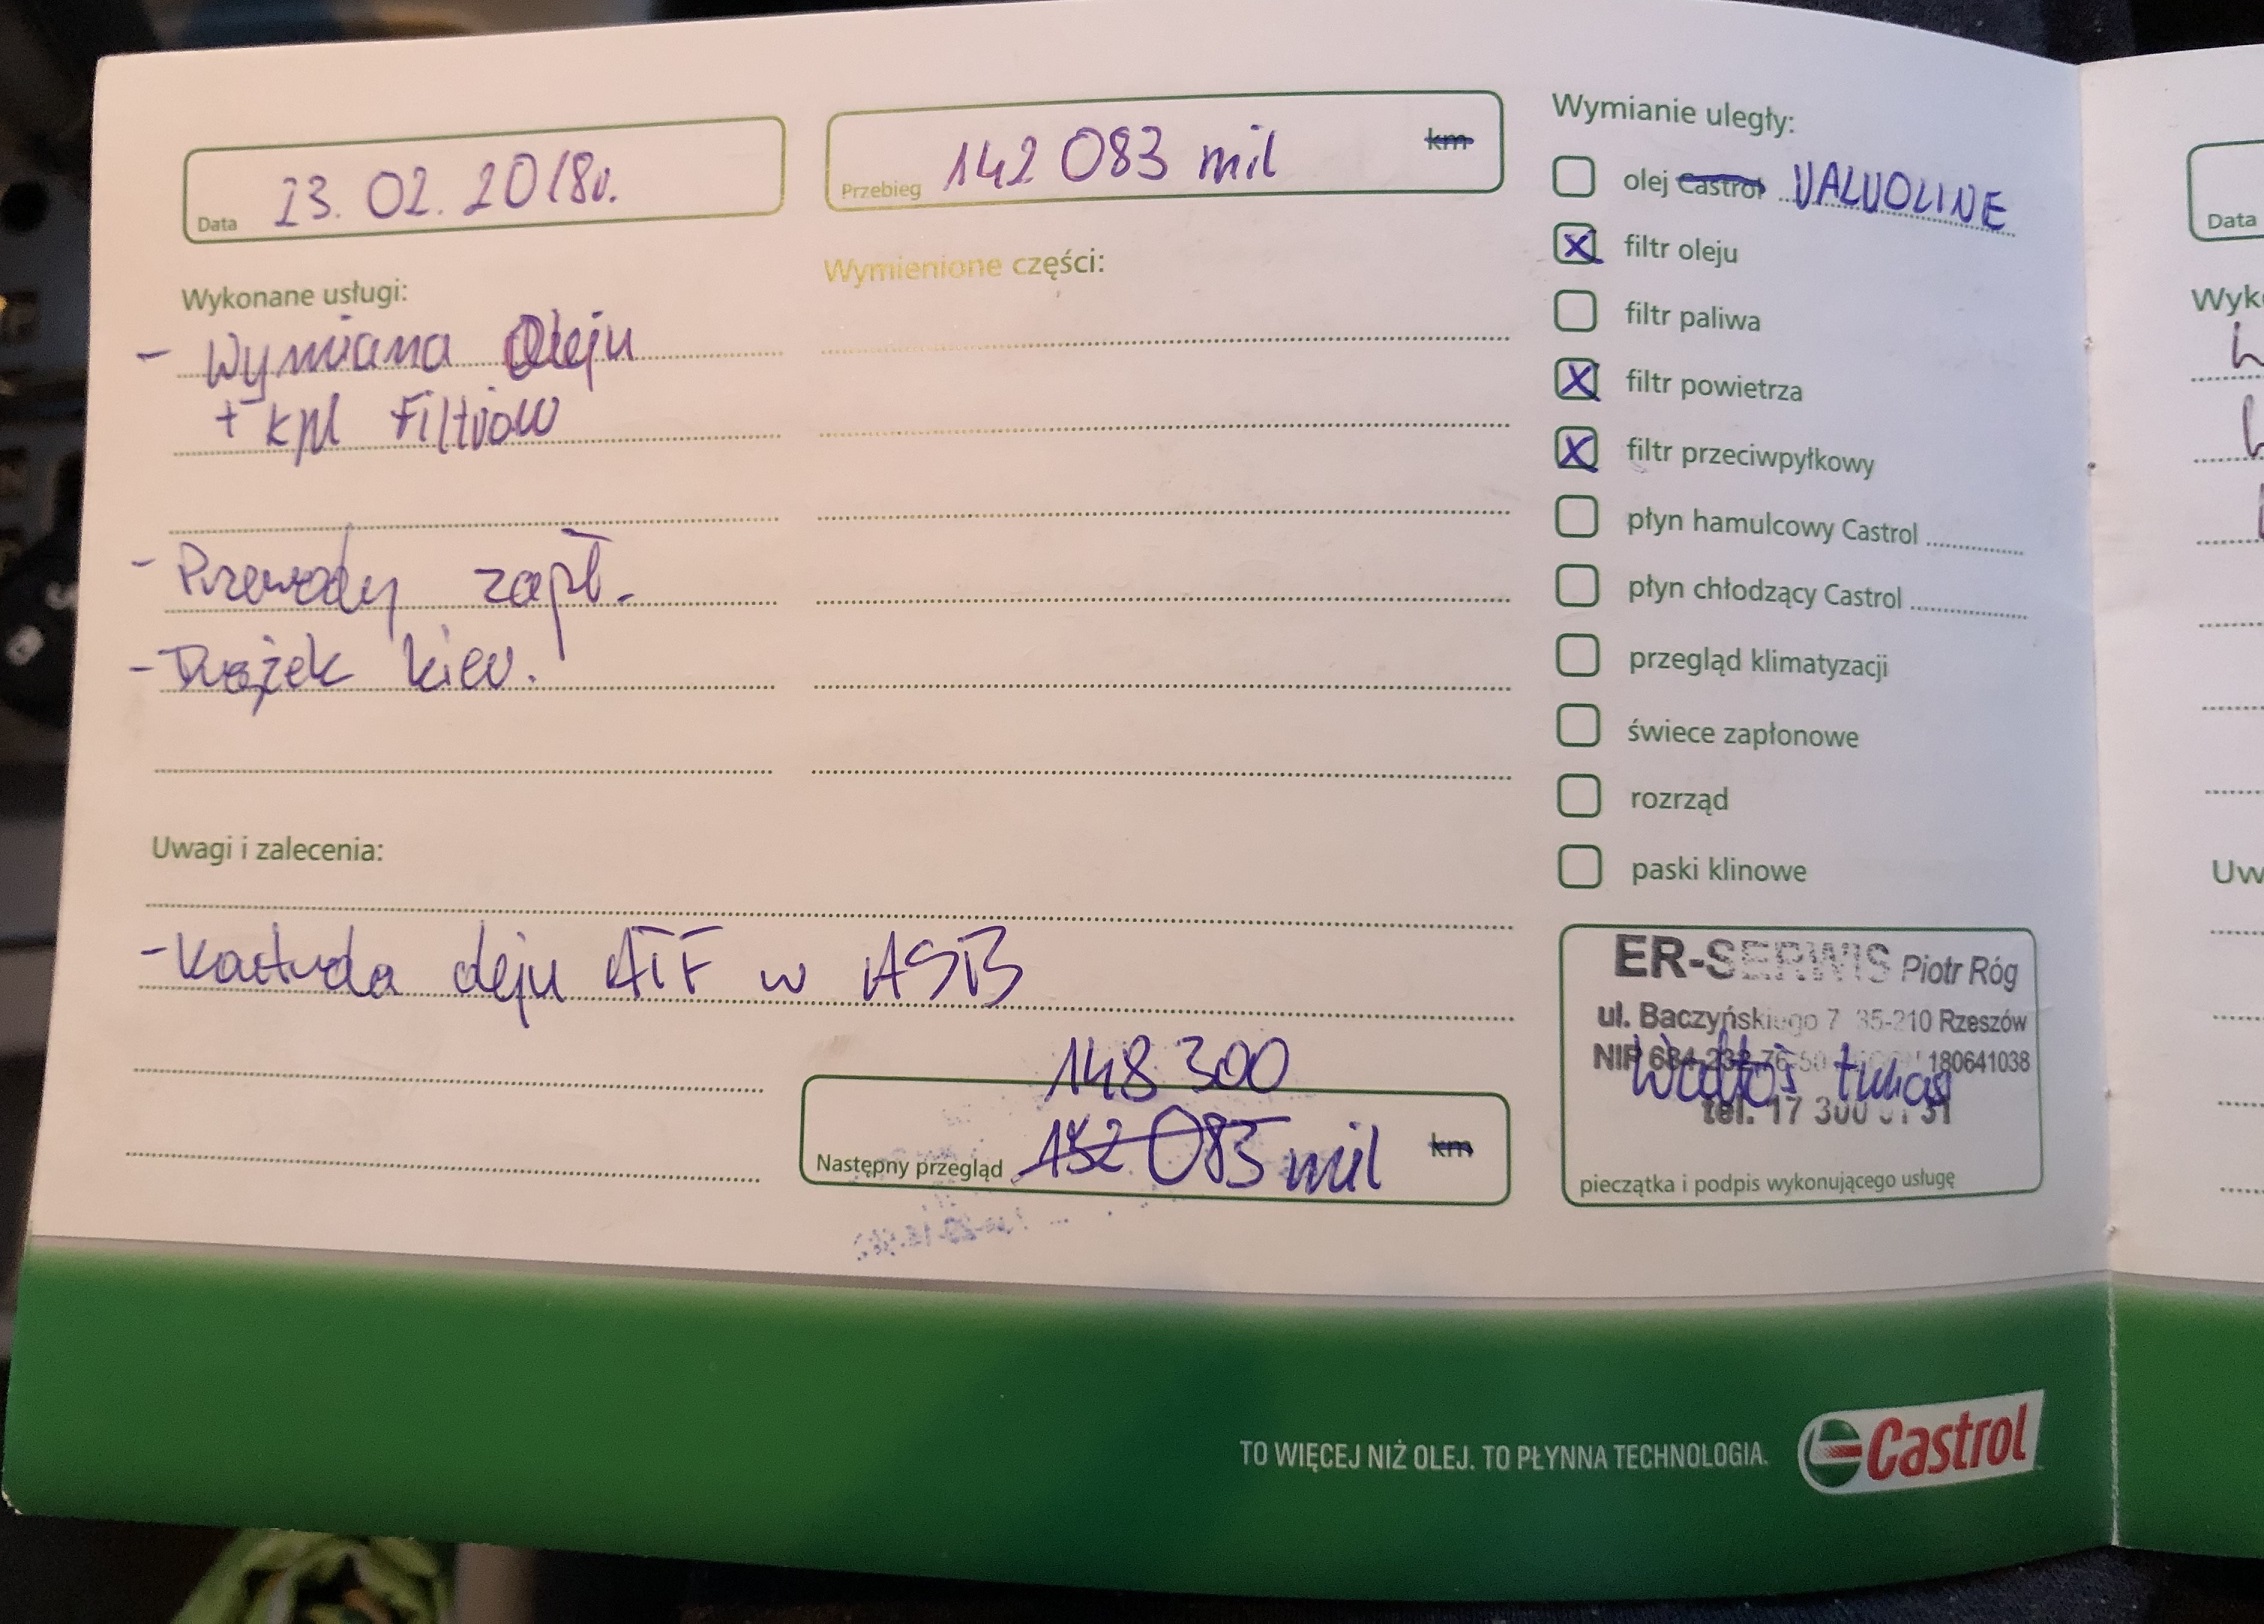 Data 23. 02. 2018r.
Przebieg 142 083 mil km
Wykonane usługi:
- Wymiana Oleju
+ kpl Filtrów
- Przewody zapł.
- Drążek kier.
Wymienione części:
Wymianie uległy:
olej Castrol VALVOLINE
X filtr oleju
filtr paliwa
X filtr powietrza
X filtr przeciwpyłkowy
płyn hamulcowy Castrol
płyn chłodzący Castrol
przegląd klimatyzacji
świece zapłonowe
rozrząd
paski klinowe
Uwagi i zalecenia:
- kontrola oleju ATF w ASB
148 300
Następny przegląd 152 083 mil km
ER-SERWIS Piotr Róg
ul. Baczyńskiego 7 35-210 Rzeszów
NIP 180641038
tel. 17 300
pieczątka i podpis wykonującego usługę
TO WIĘCEJ NIŻ OLEJ. TO PŁYNNA TECHNOLOGIA.
Castrol
Data
Wyk
Uw